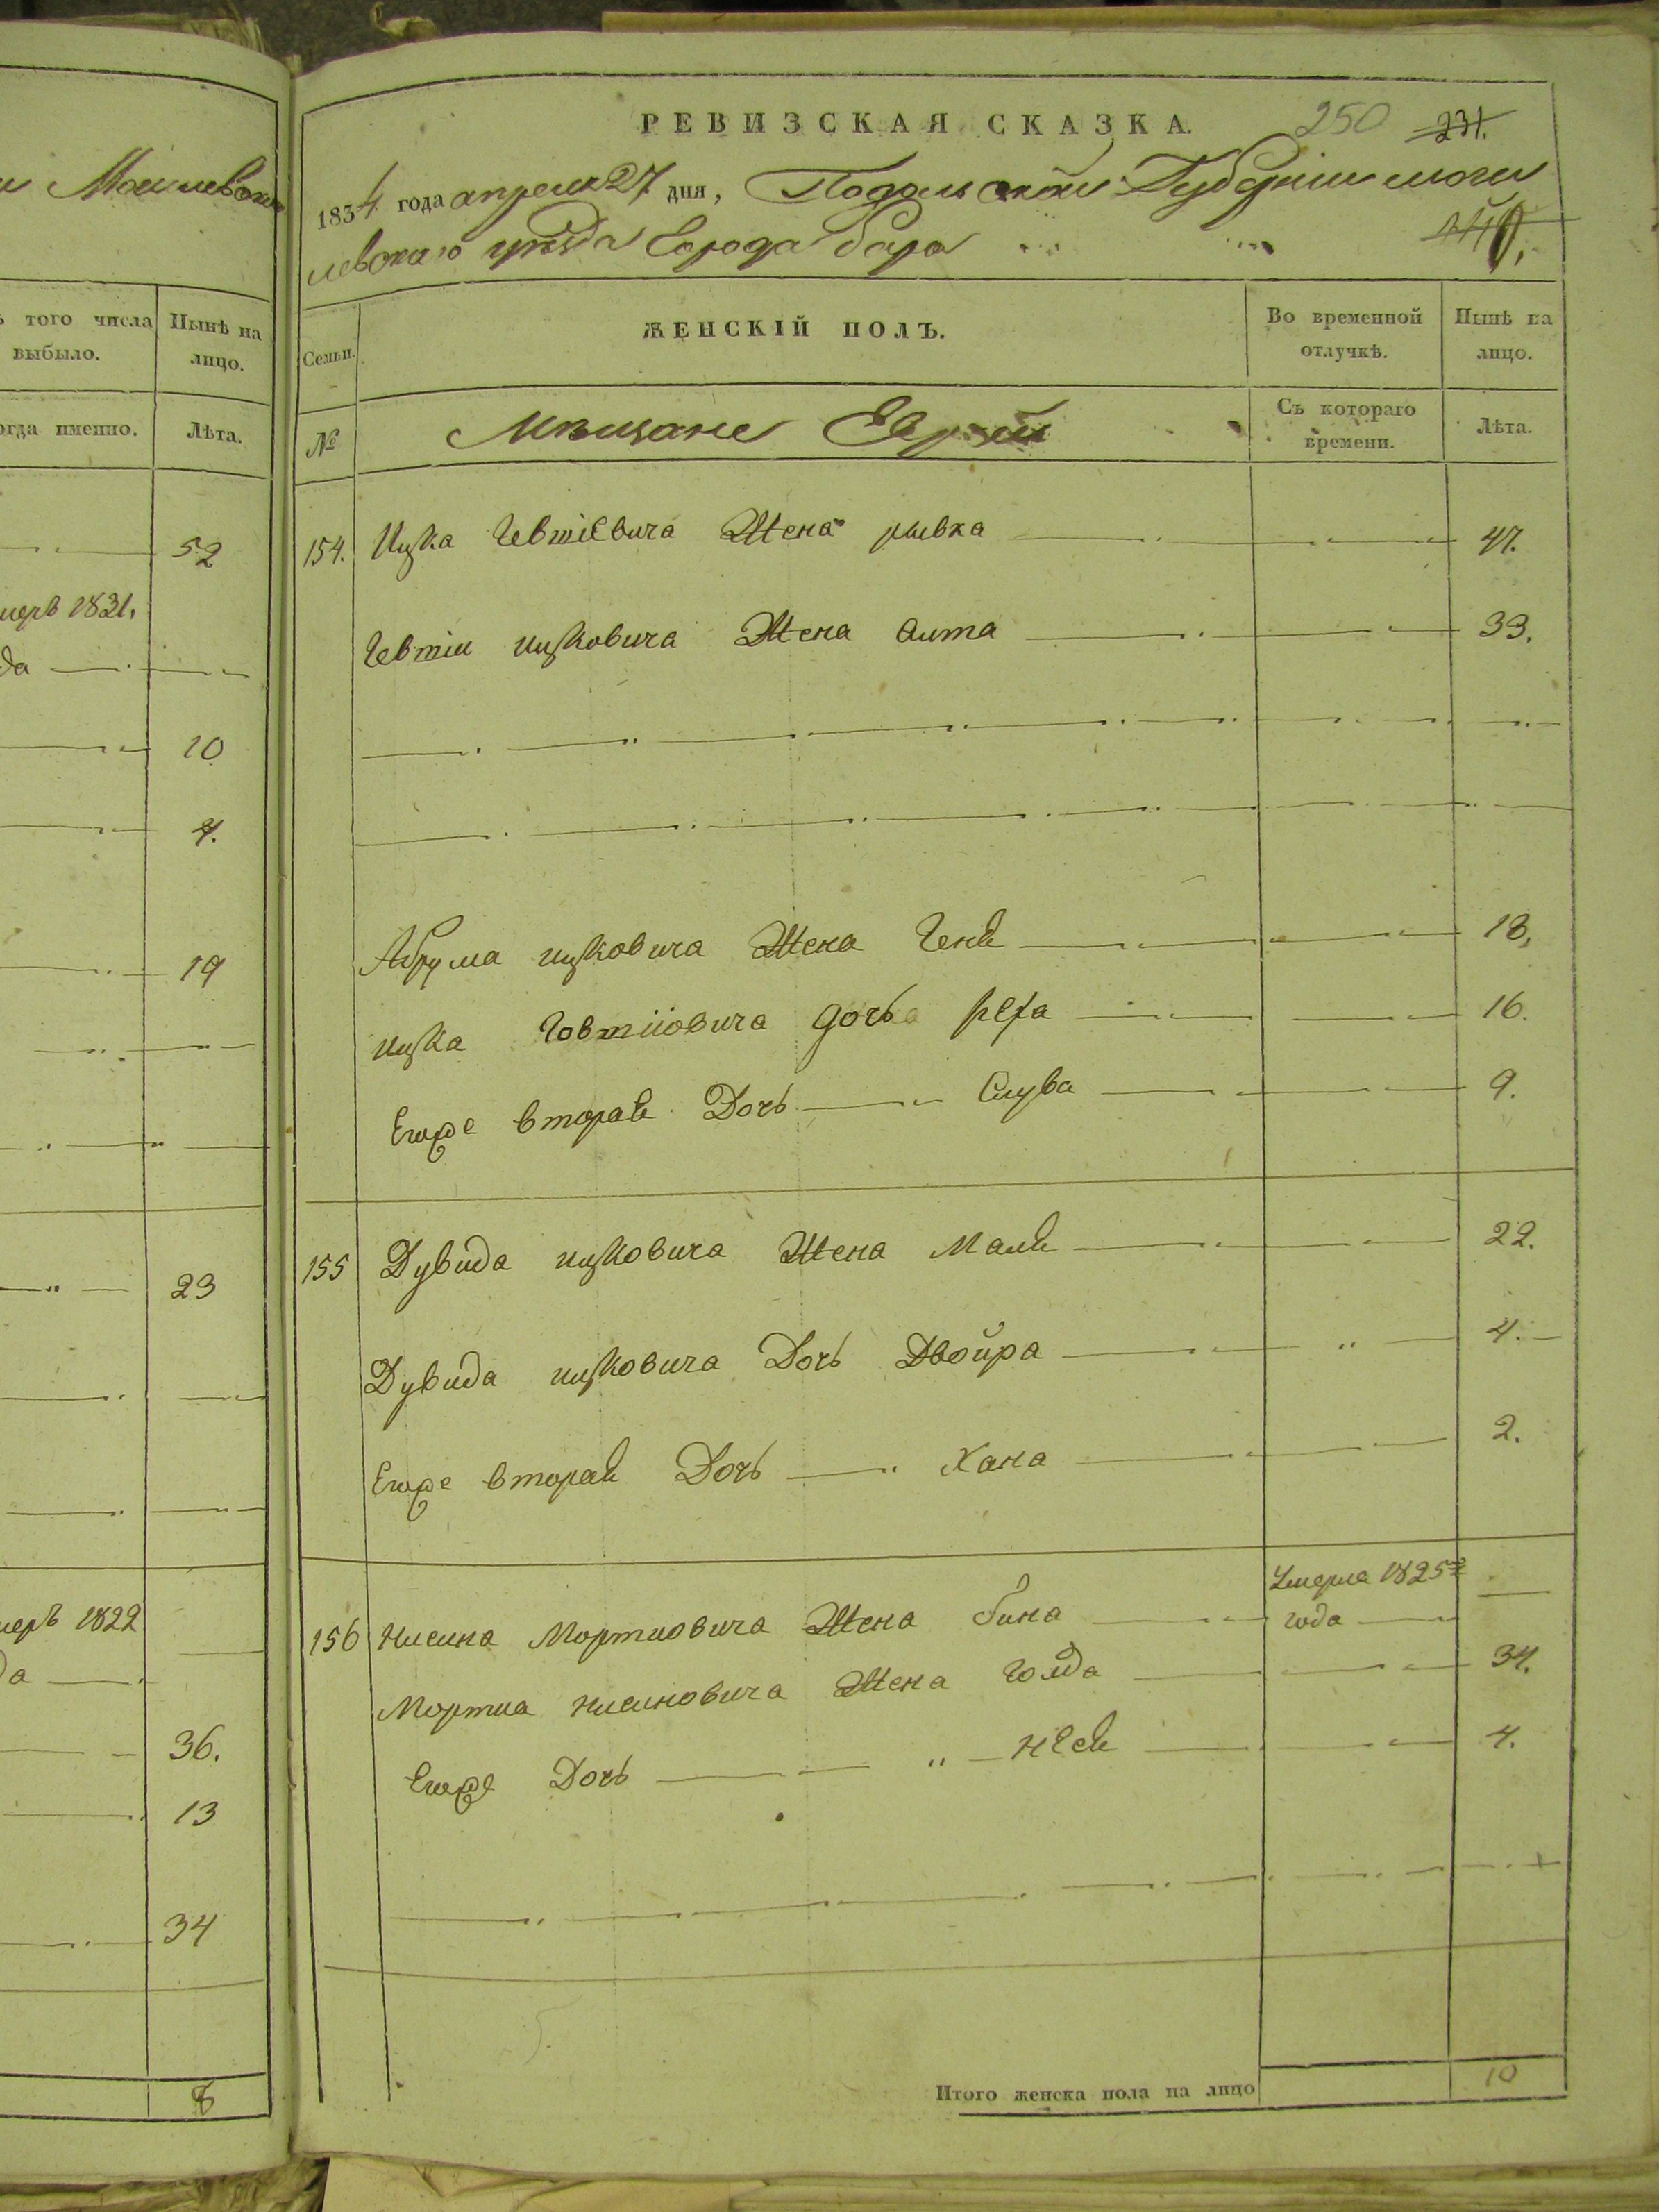 Могилевскаго
ъ того числа выбыло.
Нынѣ на лицо.
огда именно.
Лѣта.
52
меръ 1831.
да
10
4.
19
23
меръ 1822
да
36.
13
34
8
РЕВИЗСКАЯ СКАЗКА.
250 231.
1834 года апреля 27 дня, Подольской Губерніи моги
левскаго уѣзда Города бара
440.
Семьи.
ЖЕНСКІЙ ПОЛЪ.
Во временной отлучкѣ.
Нынѣ на лицо.
№
Мѣщане Евреи
Съ котораго времени.
Лѣта.
154. Ицка Гевшіевича Жена рывка 47.
Гевшіи ицковича Жена Алта 33.
Абрума ицковича Жена Геня 18,
ицка Говшиовича дочь рейза 16.
Егоже вторая Дочь Слува 9.
155 Дувида ицковича Жена Маля 22.
Дувида ицковича Дочь Двойра 4.
Егоже вторая Дочь Хана 2.
156 Нисина Мортковича Жена бина Умерла 1825го
года
Мортка нисиновича Жена Голда 34.
Егоже Дочь Неся 4.
Итого женска пола на лицо 10